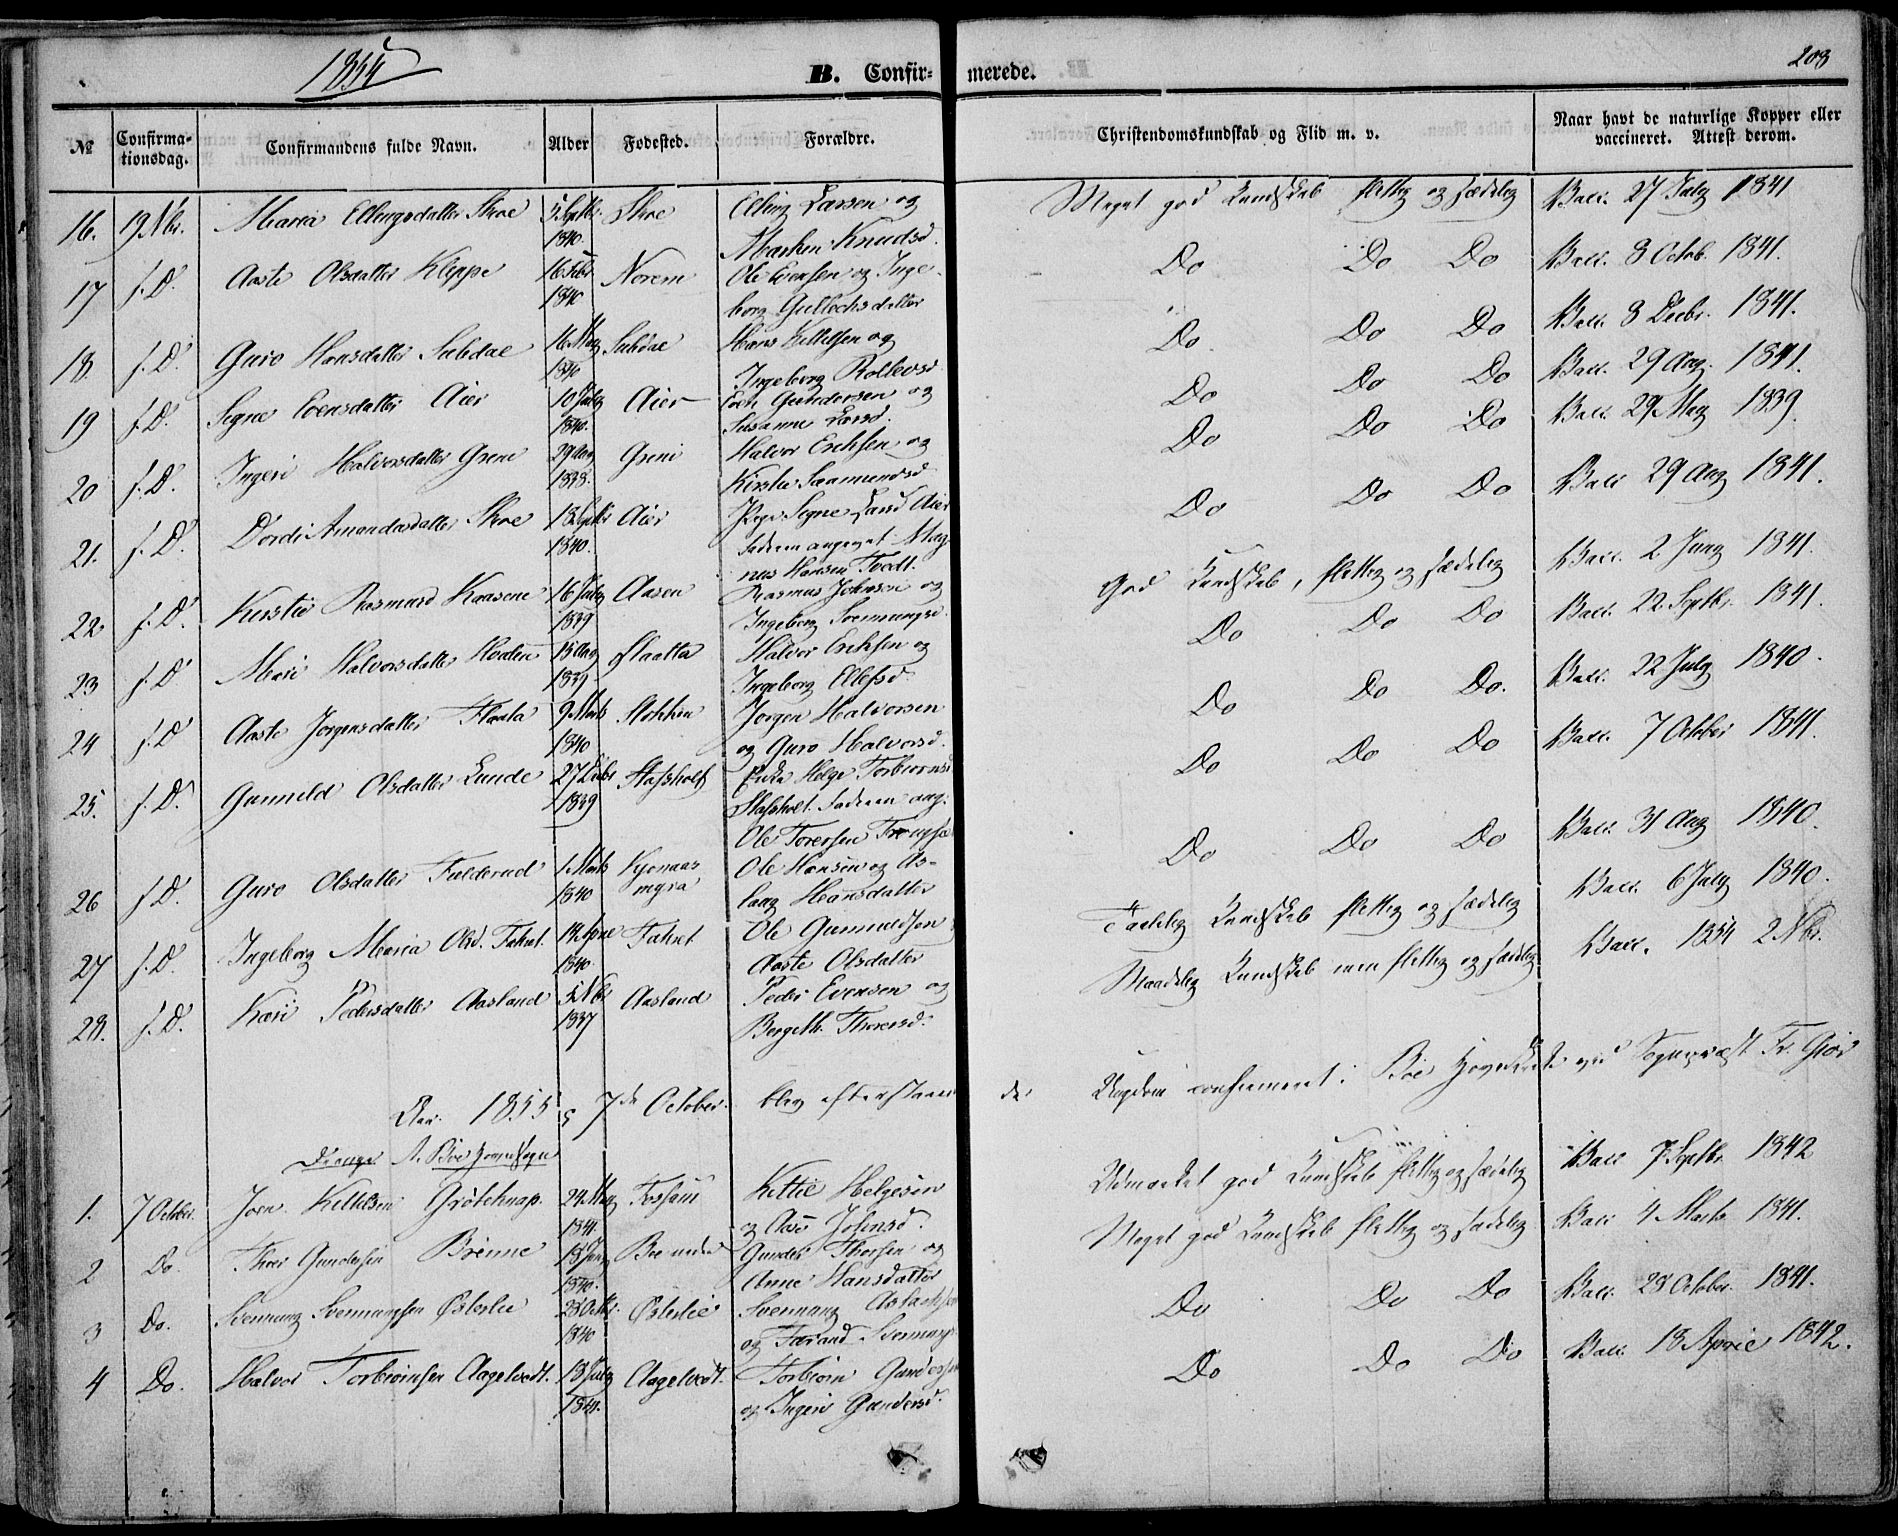 1854
B. Confir- merede.
208
№ Confirma-tionsdag. Confirmandens fulde Navn. Alder Fødested. Forældre. Christendomskundskab og Flid m. v. Naar havt de naturlige Kopper eller vaccineret. Attest derom.
16. 19 Nbr. Maria Ellingsdatter Skoe 5 Septbr. 1840. Skoe Elling Larsen og Maghen Knudsd. Meget god Kundskab flittig og sædelig Vacc. 27 July 1841
17 s. D. Aaste Olsdatter Kleppe 16 Febr 1840 Norem Ole Evensen og Ingeborg Gullechsdatter Do Do Do Vacc. 8 Octob. 1841.
18. s. D. Guro Hansdatter 16 May 1840 Hans Kittelsen og Ingeborg Rollevsd. Do. Do Do Vacc. 8 Decbr. 1841.
19 s. D. Signe Evensdatter Aier 10 July 1840. Aier Even Gundersen og Susanne Larsd. Do Do Do Vacc. 29 Aug. 1841.
20 s. D. Ingeri Halvorsdatter Greni 29 Aug 1838. Greni Halvor Eriksen og Kirstie Saamundsd Do Do Do Vacc. 29 May 1839.
21. s. D. Dordi Amundsdatter Skoe 13 Septbr 1840. Aier Pige Signe Aier Faderen angivet Magnus Hansen Tvedt. Do Do Do Vacc. 29 Aug 1841.
22 s. D. Kirstie Rasmusd Kaasene 16 July 1839 Aasen Rasmus Johnsen og Ingeborg Svennungsd. God Kundskab, flittig og sædelig Vacc. 2 Juny 1841.
23 s. D. Mari Halvorsdatter 15 Aug 1839 Flaatta Halvor Eriksen og Ingeborg Ellefsd Do Do Do Vacc. 22 Septbr. 1841.
24 s. D. Aaste Jørgensdatter Flaata 9 Marts 1840 Stokken Jørgen Halvorsen og Guro Halvorsd. Do Do Do. Vacc. 22 July 1840.
25. s. D. Gunnild Olsdatter Lunde 27 Decbr 1839 Stafsholt Pike Helge Torbiørnsd Stafsholt. Faderen ang. Ole Torersen Do Do Do Vacc. 7 October 1841.
26 s. D. Guro Olsdatter Folderud 1 Marts 1840 Kjonaasmyra Ole Hansen og Aslaug Hansdatter Do Do Do Vacc. 31 Aug 1840.
27 s. D. Ingeborg Maria Olsd. 14 Aprie 1840. Ole Gunnuldsen Aaste Olsdatter Taalelig Kundskab flittig og sædelig Vacc. 6 July 1840.
28. s. D. Kari Pedersdatter Aasland 5 Nbr 1837 Aasland Peder Evensen og Bergith Thoresd. Maadelig Kundskab men flittig og sædelig Vacc. 1854 2 Nbr.
Aar 1855, 7de October blev efterstaaen de Ungdom confirmeret i Bøe Hovedkirke ved Sognepræst Fr. Giør
Drenge A. Bøe Hovedsogn
1. 7 October. Joen Kittelsen Grotehnap. 24 May 1841. Fossum Kittil Helgesen og Aase Johnsd. Udmærket god Kundskab flittig og sædelig Vacc 7 Septbr 1842
2 Do. Thor Gundersen Brenne 15 Juny 1840. Boe Gunder Thorsen og Anne Hansdatter Meget god Kundskab flittig og sædelig Vacc 4 Marts 1841.
3 Do. Svennung Svennungsen Østerlie 28 Octbr. 1840 Østerlie Svennung Aslachsen og Tarand Svennungs Do Do Do Vacc. 28 October. 1841.
4 Do. Halvor Torbiørnsen Aagetvedt. 18 July 1841. Aagetvedt. Torbiørn Gunders og Ingeri Gundersd. Do Do Do Vacc. 18 Aprie 1842.